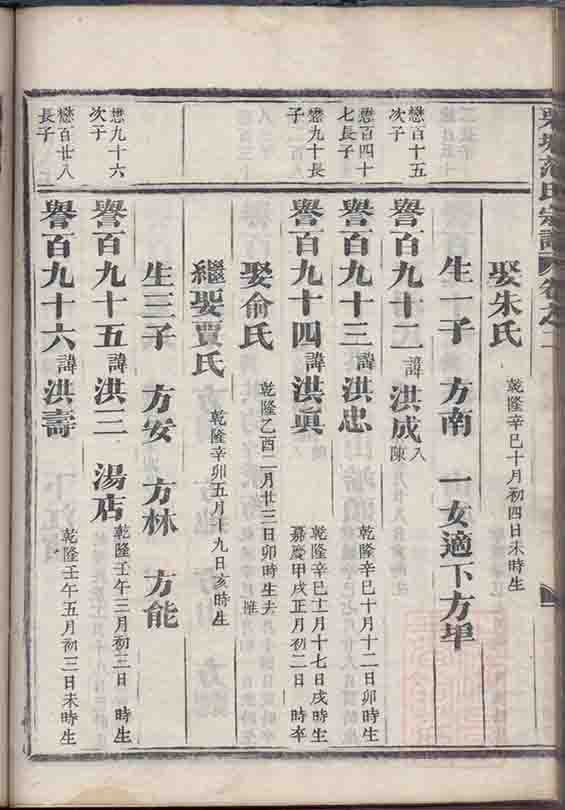 范氏宗譜 卷之
娶朱氏 乾隆辛巳十月初四日未時生
生一子 方南 一女適下方毕
懋百十五
次子
譽百九十二 諱 洪成 入
陳
懋百四十
七長子
譽百九十三 諱 洪忠 乾隆辛巳十月十二日卯時生
懋九十長
子
譽百九十四 諱 洪真 乾隆辛巳十一月十七日戌時生
嘉慶甲戌正月初二日 時卒
娶俞氏 乾隆乙酉二月廿三日卯時生去
繼娶賈氏 乾隆辛卯五月十九日亥時生
生三子 方安 方林 方能
懋九十六
次子
譽百九十五 諱 洪三 湯店 乾隆壬午三月初三日 時生
懋百廿八
長子
譽百九十六 諱 洪壽 乾隆壬午五月初三日未時生